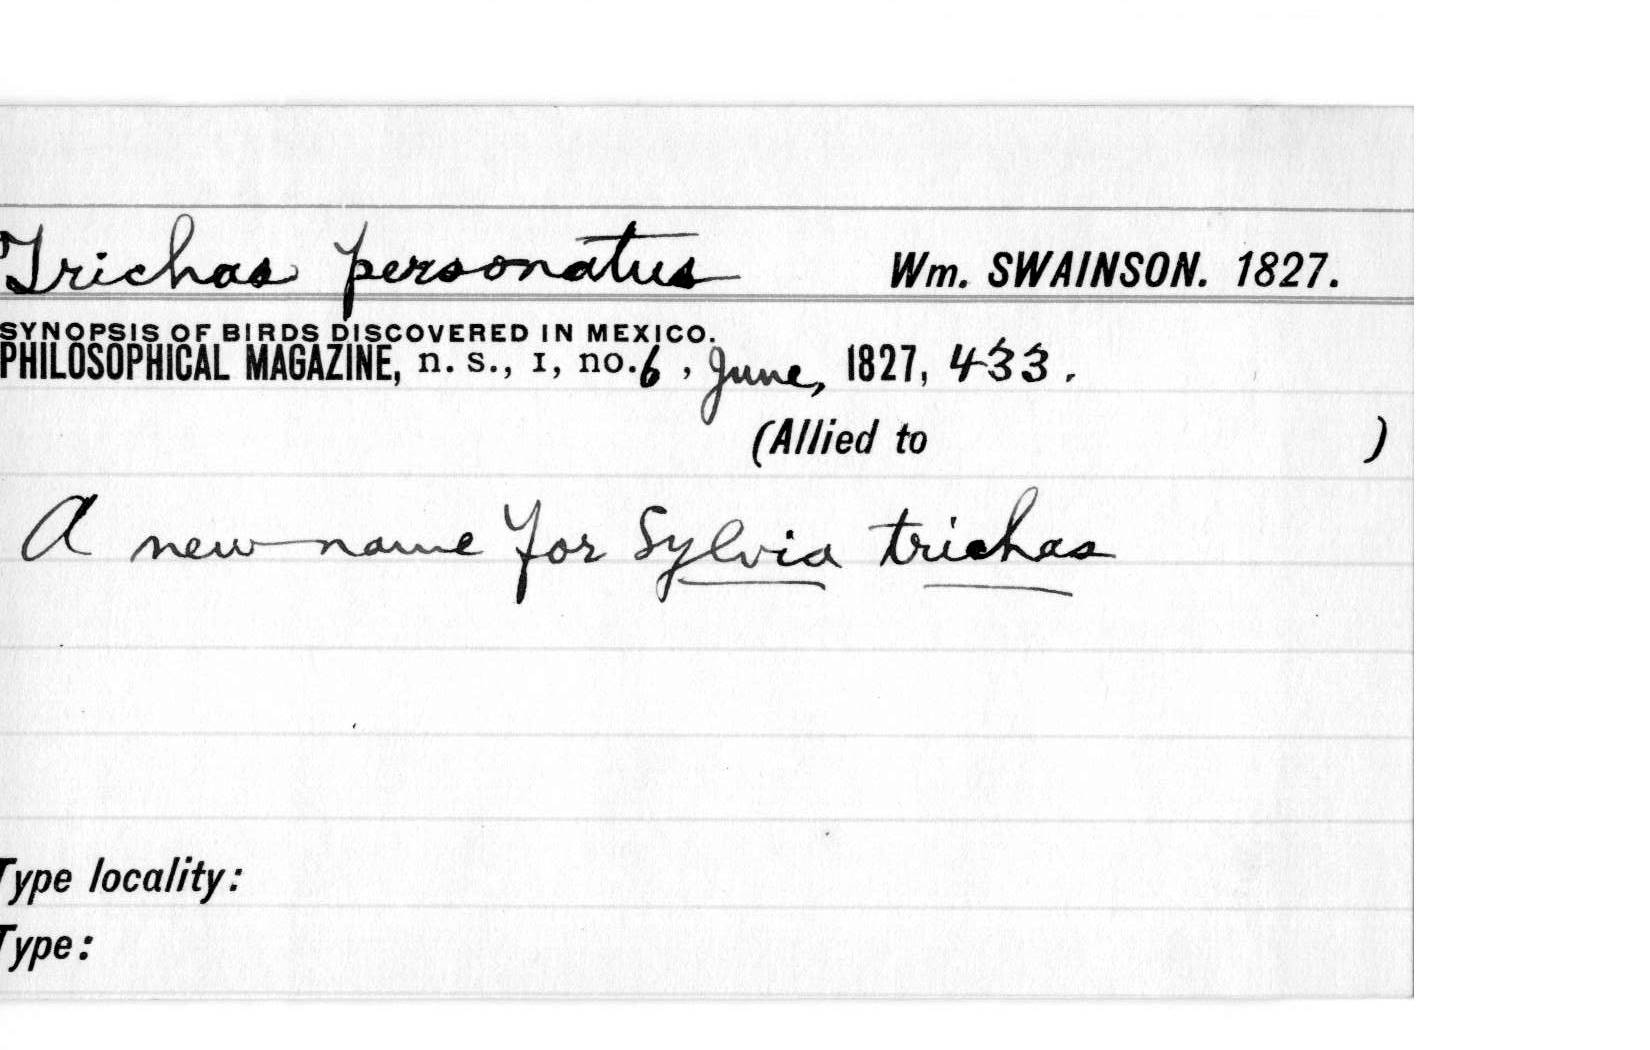 Trichas personatus Wm. SWAINSON. 1827.
SYNOPSIS OF BIRDS DISCOVERED IN MEXICO.
PHILOSOPHICAL MAGAZINE, n. s., I, no. 6, June, 1827, 433.
(Allied to )
A new name for Sylvia trichas
Type locality:
Type: